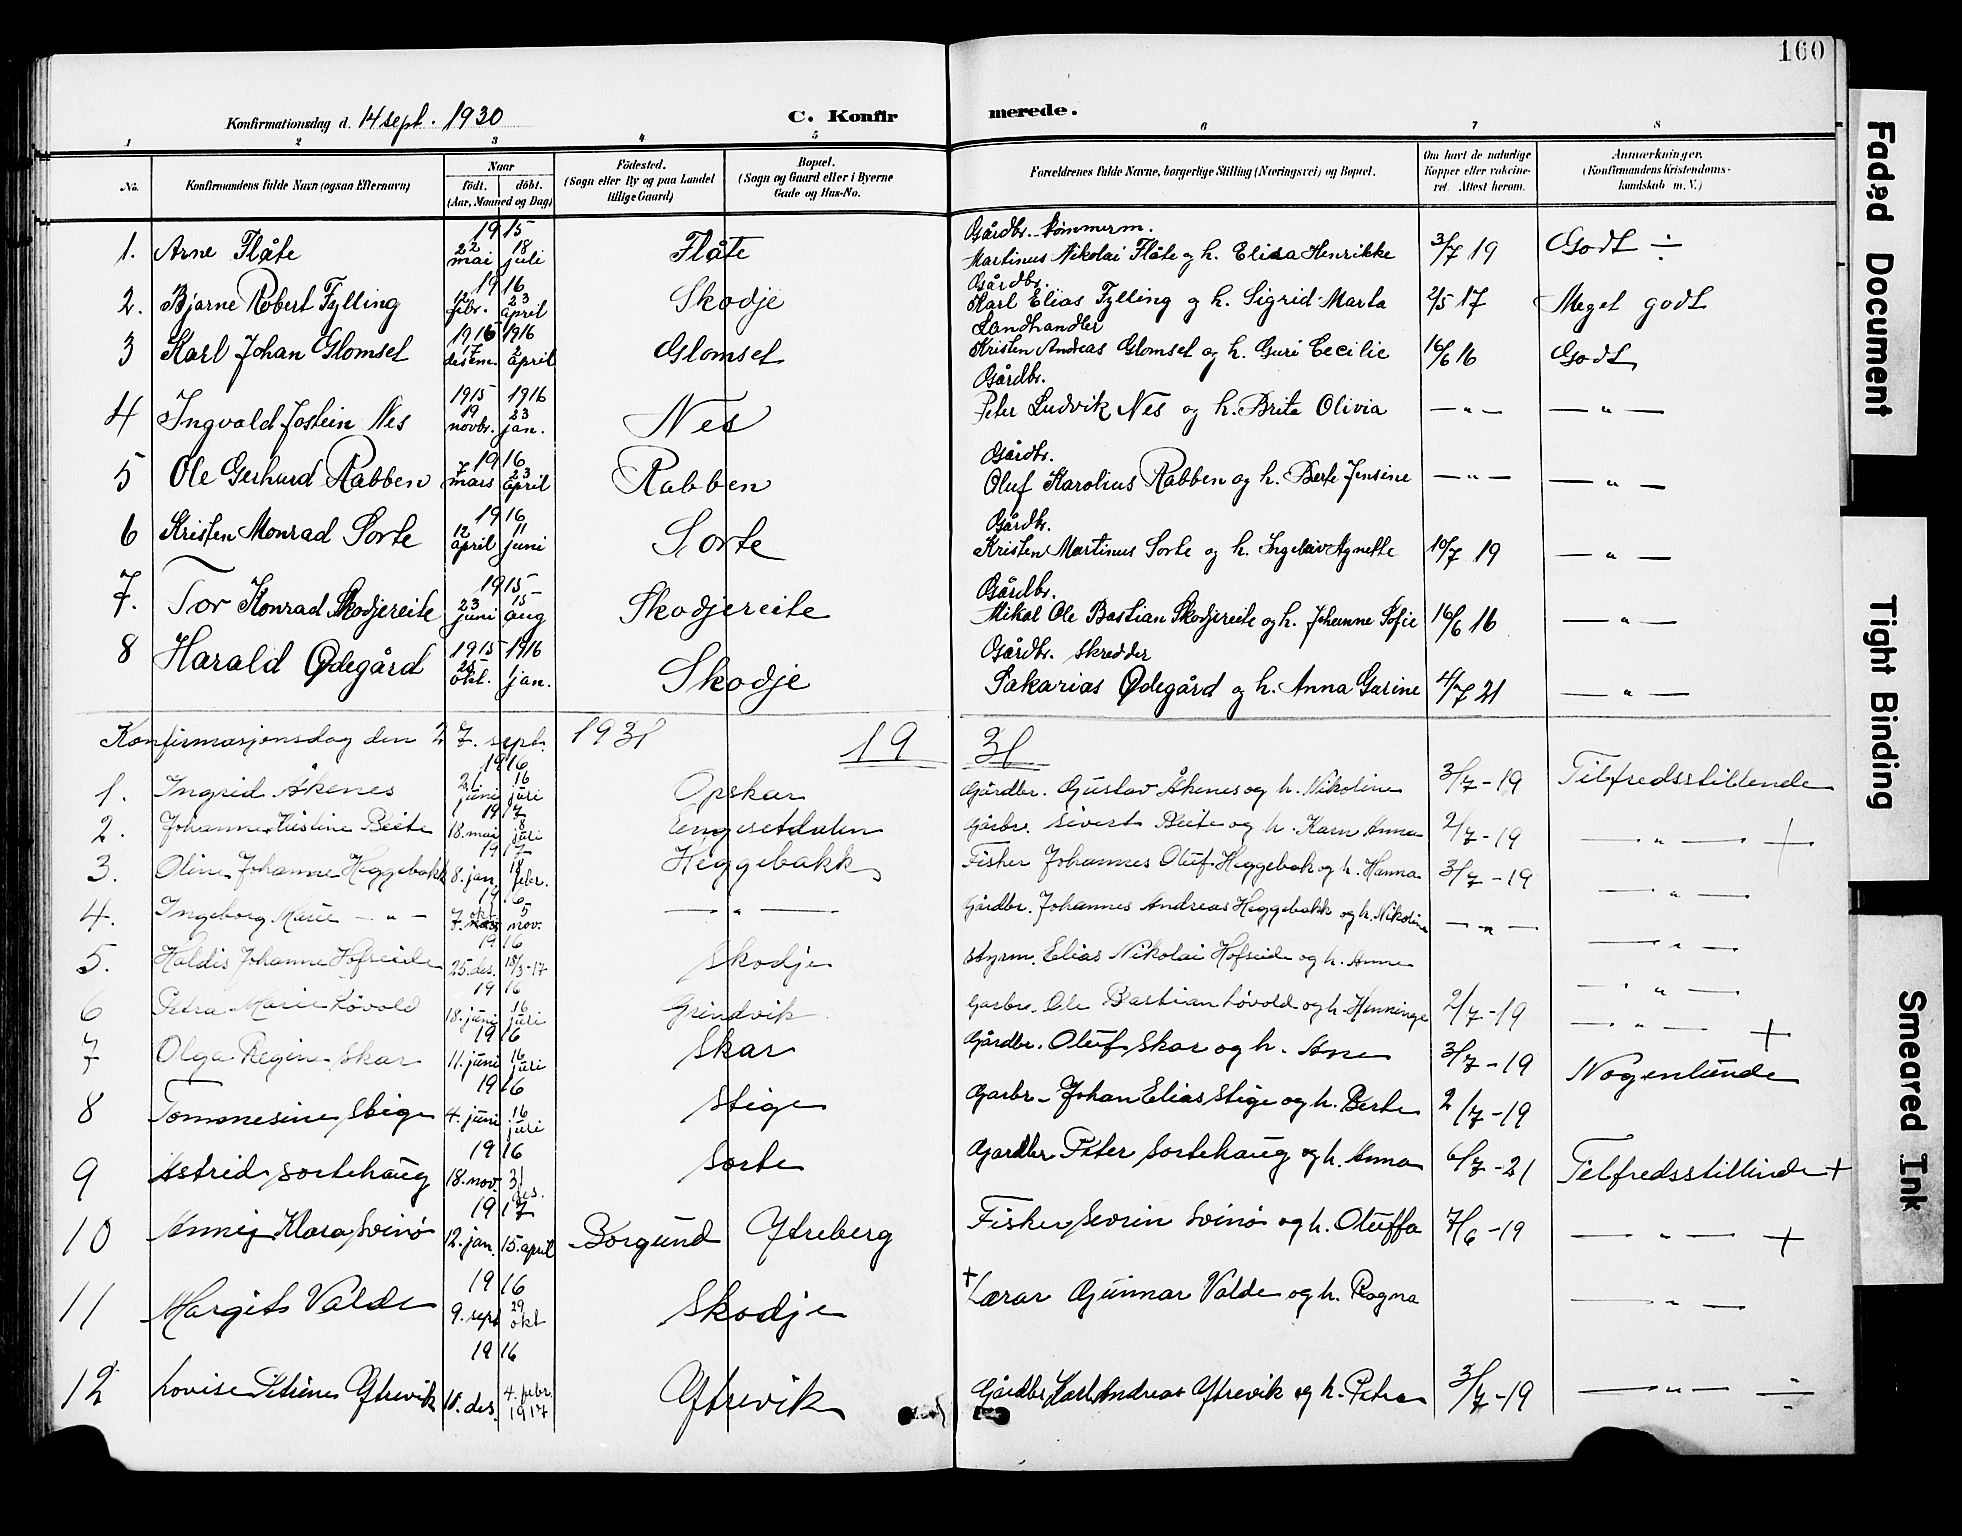 160
Konfirmationsdag d. 14 sept. 1930 C. Konfir merede.
1 2 3 4 5 6 7 8
No. Konfirmandens fulde Navn (ogsaa Efternavn) Naar född. döbt. (Aar, Maaned og Dag) Födested. (Sogn eller By og paa Landet tillige Gaard) Bopæl. (Sogn og Gaard eller i Byerne Gade og Hus-No. Forældrenes fulde Navne, borgerlige Stilling (Næringsvei) og Bopæl. Om havt de naturlige Kopper eller vakcineret. Attest herom. Anmærkninger. (Konfirmandens Kristendomskundskab m. V.)
1. Arne Flåte 1915 22 mai 18 juli Flåte Gårdbr. tömmerm. Martinus Nikolai Flåte og h. Elisa Henrikke 3/7 19 Godt ÷
2. Bjarne Robert Tylling 1916 12 febr. 23 april Skodje Gårdbr. Karl Elias Tylling og h. Sigrid Marta 2/5 17 Meget godt
3 Karl Johan Glomset 1915 17 desem. 1916 2 april Glomset Landhandler Kristen Andreas Glomset og h. Guri Cecilie 16/6 16 Godt
4 Ingvald Jostein Nes 1915 19 novbr. 1916 23 jan. Nes Gårdbr. Peter Ludvik Nes og h. Brita Olivia — " — — " —
5 Ole Gerhard Rabben 1916 7 mars 23 april Rabben Gårdbr. Oluf Karolius Rabben og h. Berte Jensine — " — — " —
6 Kristen Monrad Sorte 1916 12 april 11 juni Sorte Gårdbr. Kristen Martinus Sorte og h. Ingebir Agnette 10/7 19 — " —
7. Tor Konrad Skodjereite 1915 23 juni 15 aug Skodjereite Gårdbr. Mikal Ole Bastian Skodjereite og h. Johanne Sofie 16/6 16 — " —
8 Harald Ødegård 1915 25 okt. 1916 jan. Skodje Gårdbr. skredder Sakarias Ødegård og h. Anna Garine 4/7 21 — " —
Konfirmasjonsdag den 27. sept. 1931 1931
1. Ingrid Åkenes 1916 21 juni 16 juli Opskar Gårdbr. Gustav Åkenes og h. Nikoline 3/7 - 19 Tilfredsstillende
2. Johanne Kristine Beite 1917 18. mai 8 juli Engesetdalen Gårbr. Sivert Beite og h. Karn Anna 2/7 - 19 — " — +
3. Oline Johanne Heggebakk 1917 8. jan. 18 febr. Heggebakk Fisker Johannes Oluf Heggebak og h. Hanna 3/7 - 19 — " —
4. Ingeborg Marie — " — 1916 7. okt 5 nov. — " — Gårdbr. Johannes Andreas Heggebakk og h. Nikoline — " — — " —
5. Haldis Johanne Hofseide 1916 25. des. 18/3-17 Skodje Styrm. Elias Nikolai Hofseide og h. Anne — " —
6 Petra Marie Løvold 1916 18. juni 16 juli Grindvik Garbr. Ole Bastian Løvold og h. Henninge 2/7 - 19 — " — +
7 Olga Regine Skar 1916 11. juni 16 juli Skar Gårdbr. Oluf Skar og h. Ane 3/7 - 19 Nogenlunde
8 Tommesine Stige 1916 4. juni 16 juli Stige Garbr. Johan Elias Stige og h. Berte 2/7 - 19
9 Astrid Sortehaug 1916 18. nov. 31 des. Sorte Gardbr Peter Sortehaug og h. Anna 6/7 - 21 Tilfredsstillinde +
10 Annij Klara Svinö 1917 12. jan. 15. april Borgund Ytreberg Fisker Sevrin Svinö og h. Oluffa 7/6 - 19 — " — +
11 Margit Valde 1916 9. sept 29 okt Skodje + Lærar Gunnar Valde og h. Ragna — " —
12 Lovise Petrine Ytrevik 1916 10. des. 4. febr. 1917 Ytrevik Gårdbr. Karl Andreas Ytrevik og h. Petra 3/7 - 19 — " — ÷
Faded Document
Tight Binding
Smeared Ink